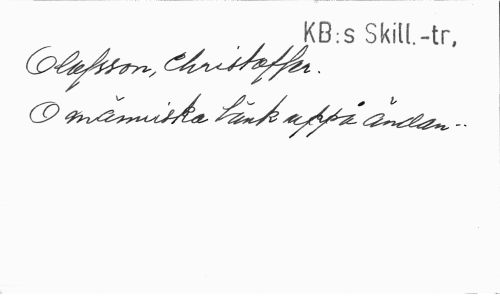 KB:s Skill.-tr,
Olofsson, Christoffer.
O människa tänk uppå ändan..